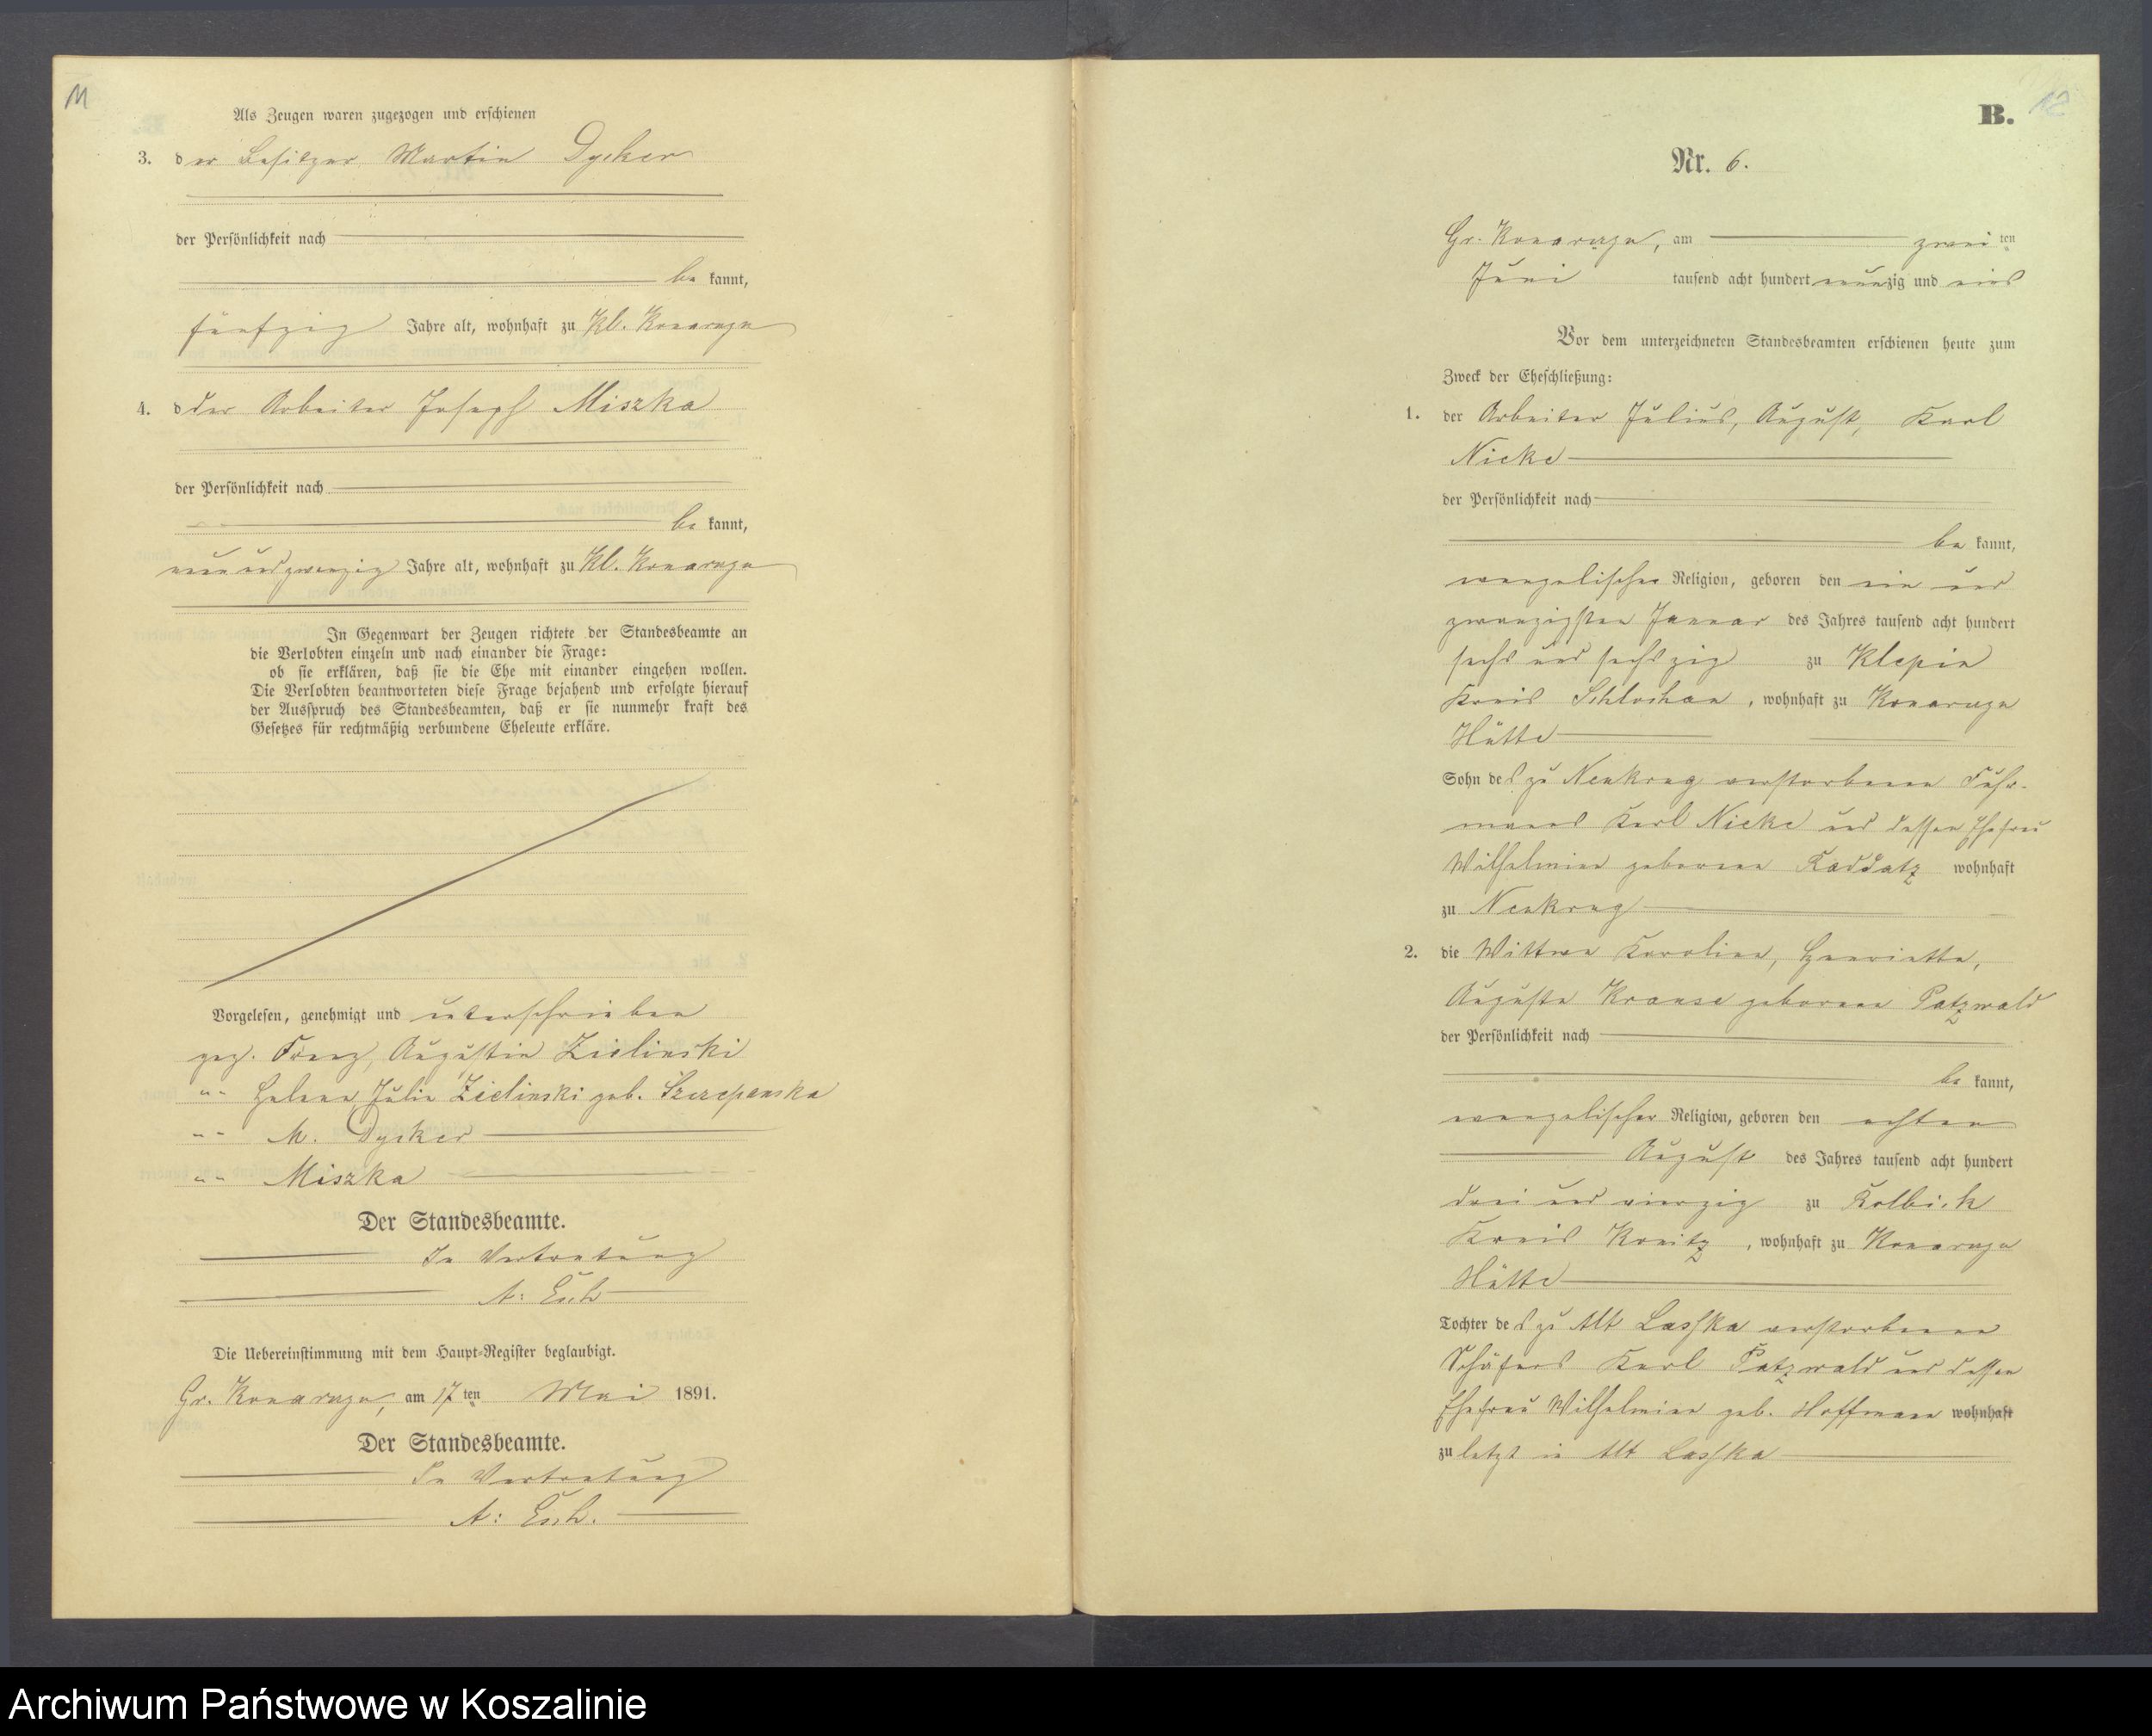 11
Als Zeugen waren zugezogen und erschienen
3. der Besitzer Martin Dycker
der Persönlichkeit nach
be kannt,
fünfzig Jahre alt, wohnhaft zu Kl. Konarzyn
4. d der Arbeiter Joseph Miszka
der Persönlichkeit nach
be kannt,
neun und zwanzig Jahre alt, wohnhaft zu Kl. Konarzyn
In Gegenwart der Zeugen richtete der Standesbeamte an
die Verlobten einzeln und nach einander die Frage:
ob sie erklären, daß sie die Ehe mit einander eingehen wollen.
Die Verlobten beantworteten diese Frage bejahend und erfolgte hierauf
der Ausspruch des Standesbeamten, daß er sie nunmehr kraft des
Gesetzes für rechtmäßig verbundene Eheleute erkläre.
Vorgelesen, genehmigt und unterschrieben
gez. Franz, Augustin Zielinski
"" Helene Julie Zielinski geb. Szczepanska
"" M. Dycker
"" Miszka
Der Standesbeamte.
In Vertretung
A: Esch
Die Uebereinstimmung mit dem Haupt-Register beglaubigt.
Gr. Konarzyn, am 17 ten Mai 1891.
Der Standesbeamte.
In Vertretung
A: Esch.
B. 12
Nr. 6.
Gr. Konarzyn, am zwei ten
Juni tausend acht hundert neunzig und eins
Vor dem unterzeichneten Standesbeamten erschienen heute zum
Zweck der Eheschließung:
1. der Arbeiter Julius, August, Karl
Nicke
der Persönlichkeit nach
be kannt,
evangelischer Religion, geboren den ein und
zwanzigsten Januar des Jahres tausend acht hundert
sechs und sechszig zu Klepin
Kreis Schlochau, wohnhaft zu Konarzyn
Hütte
Sohn des zu Neukrug verstorbenen Fuhr-
manns Karl Nicke und dessen Ehefrau
Wilhelmine geborene Raddatz wohnhaft
zu Neukrug
2. die Wittwe Karoline, Henriette,
Auguste Krause geborene Patzwald
der Persönlichkeit nach
be kannt,
evangelischer Religion, geboren den achten
August des Jahres tausend acht hundert
drei und vierzig zu Rolbick
Kreis Konitz, wohnhaft zu Konarzyn
Hütte
Tochter des zu Alt Laska verstorbenen
Schäfers Karl Patzwald und dessen
Ehefrau Wilhelmine geb. Hoffmann wohnhaft
zu letzt in Alt Laska
Archiwum Państwowe w Koszalinie